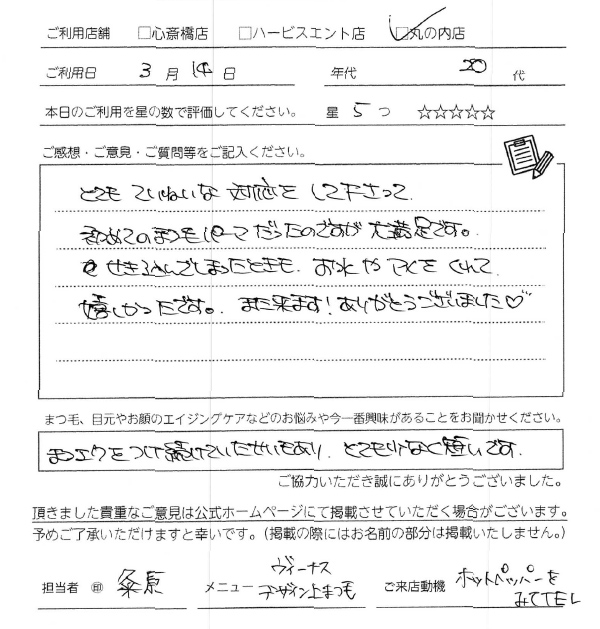 ご利用店舗 □心斎橋店 □ハービスエント店 □丸の内店
ご利用日 3月14日 年代 20代
本日のご利用を星の数で評価してください。 星5つ ☆☆☆☆☆
ご感想・ご意見・ご質問等をご記入ください。
とても ていねいな 対応を して下さって
初めてのまつ毛パーマ だったのですが 大満足です。
せきこんでしまったときも、お水や マスクを くれて
嬉しかったです。また来ます!ありがとうございました♡
まつ毛、目元やお顔のエイジングケアなどのお悩みや今一番興味があることをお聞かせください。
まつエクをつけ続けていたせいもあり、とても少なく短いです。
ご協力いただき誠にありがとうございました。
頂きました貴重なご意見は公式ホームページにて掲載させていただく場合がございます。
予めご了承いただけますと幸いです。(掲載の際にはお名前の部分は掲載いたしません。)
担当者 ㊞ 粂原 メニュー ヴィーナスデザイン上まつ毛 ご来店動機 ホットペッパーをみてTEL